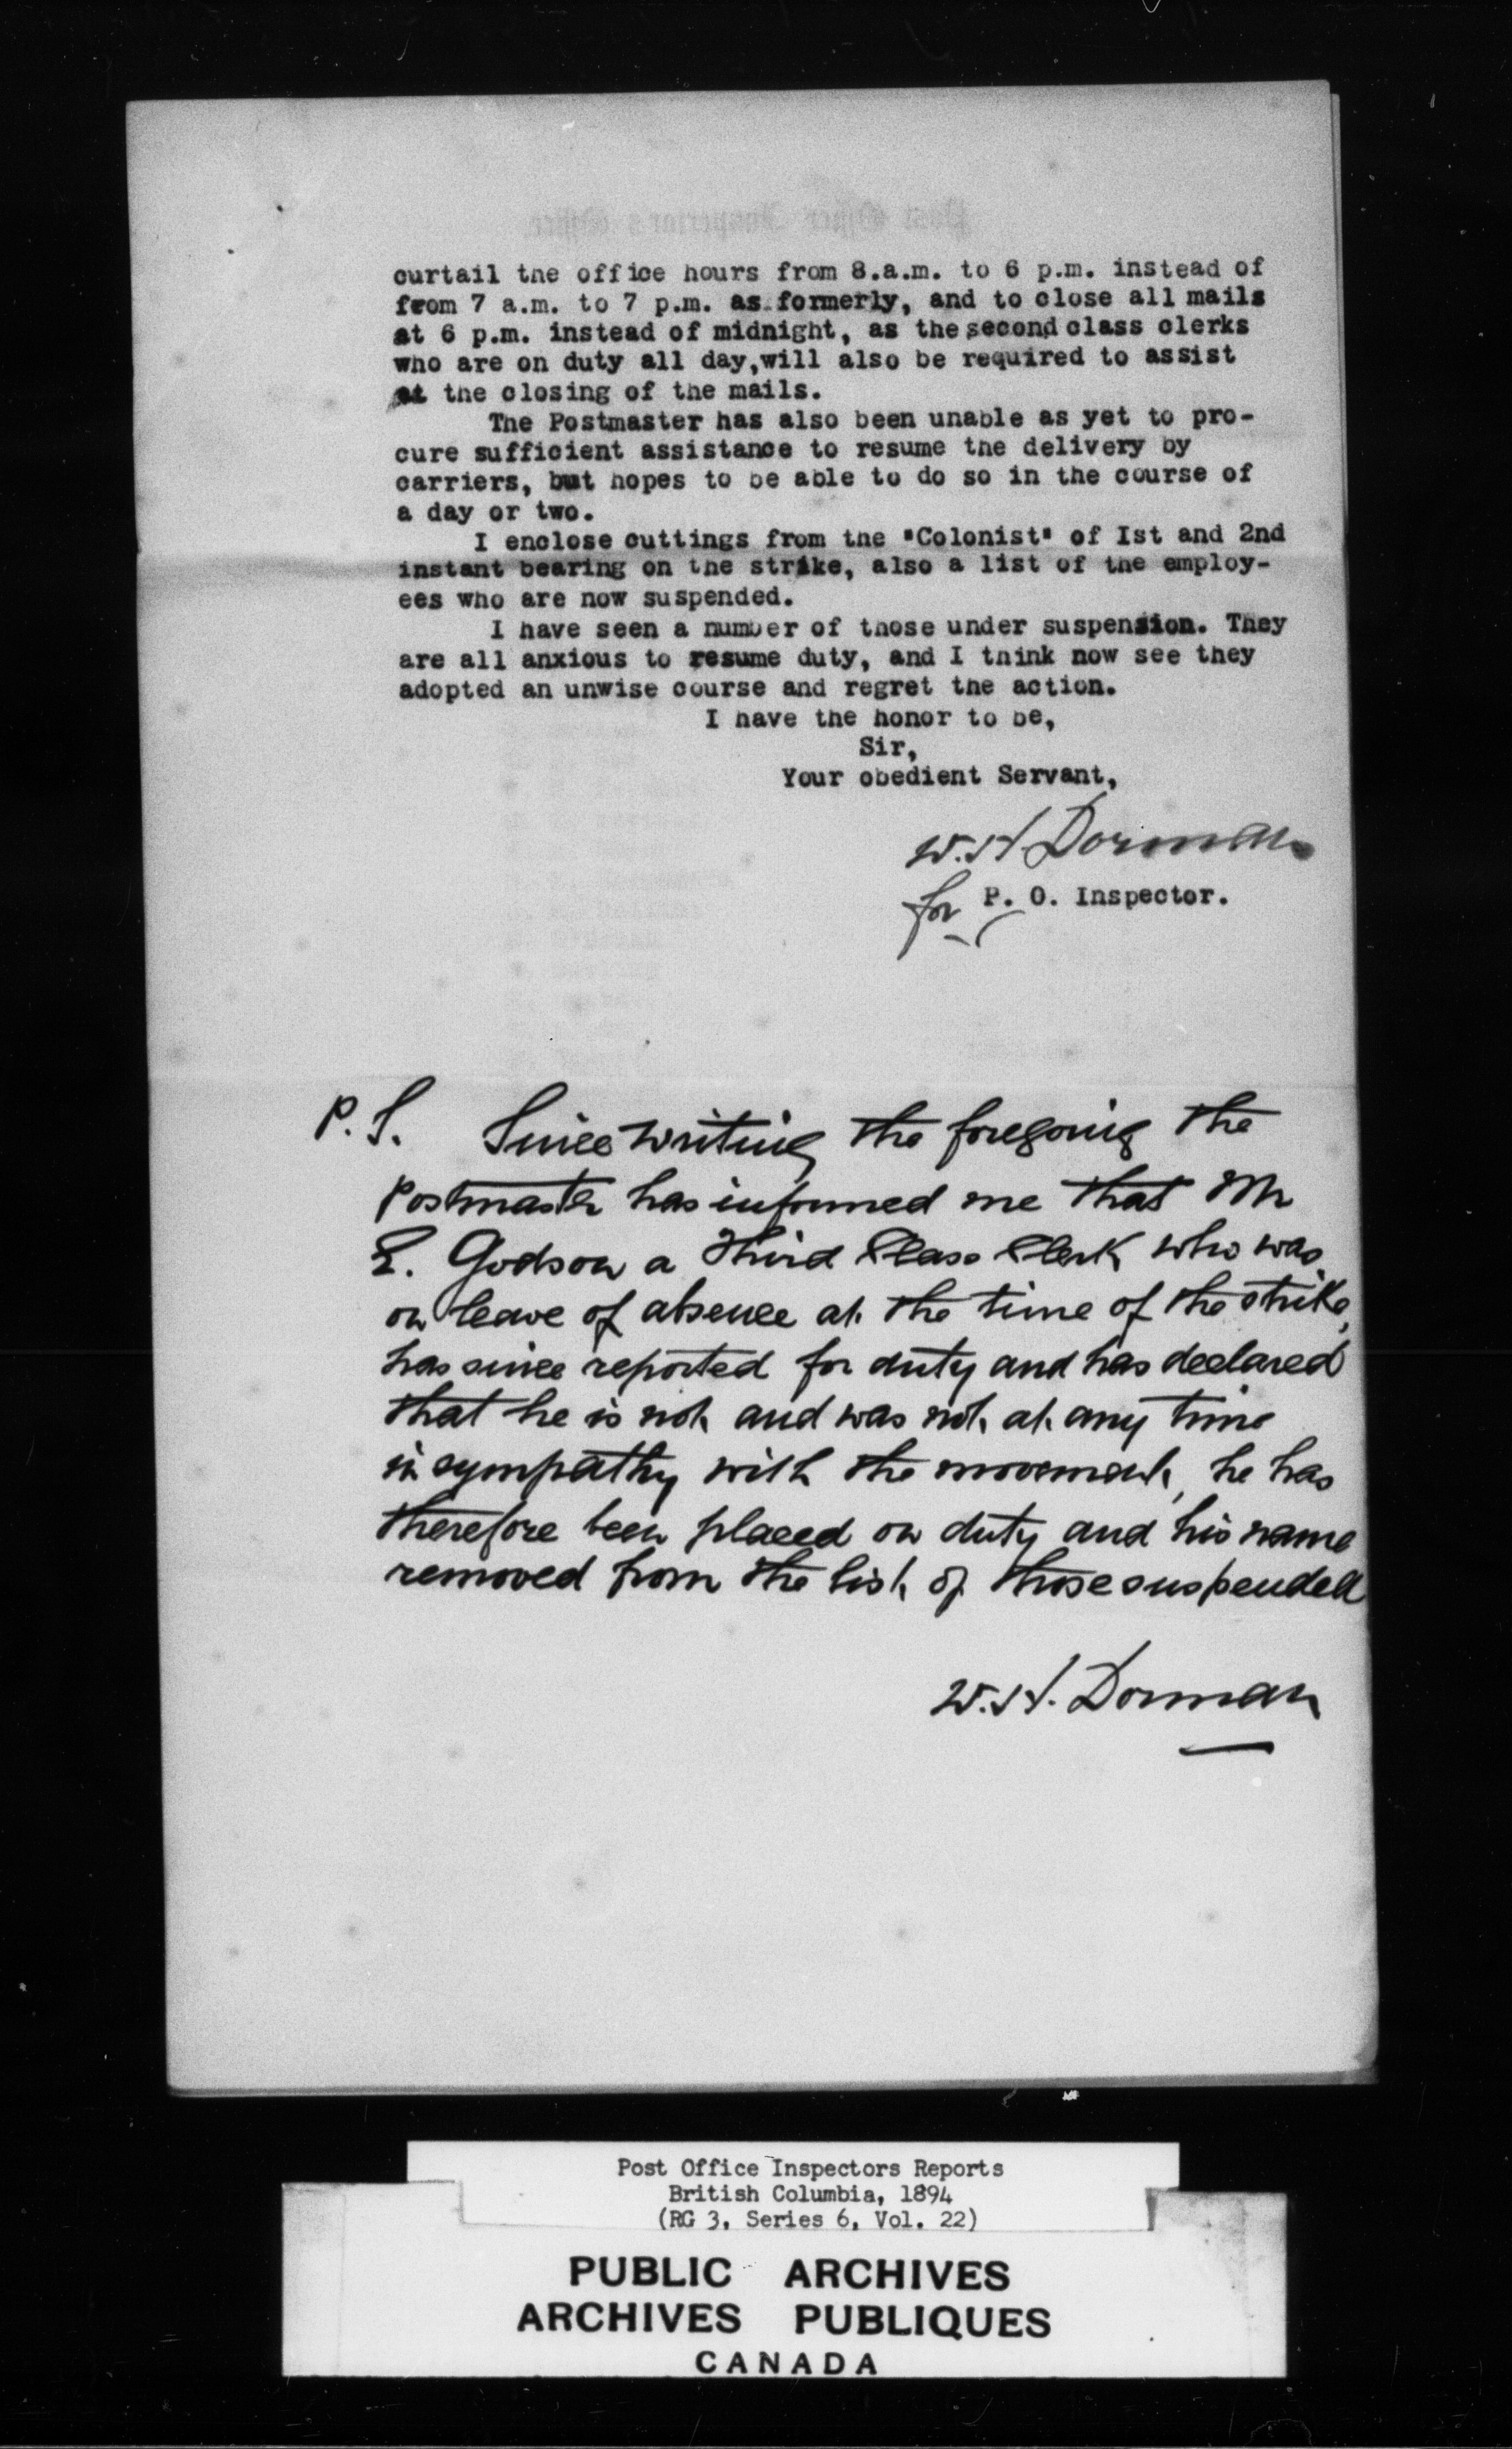 curtail the office hours from 8.a.m. to 6 p.m. instead of
from 7 a.m. to 7 p.m. as formerly, and to close all mails
at 6 p.m. instead of midnight, as the second class clerks
who are on duty all day,will also be required to assist
at the closing of the mails.
The Postmaster has also been unable as yet to pro-
cure sufficient assistance to resume the delivery by
carriers, but hopes to be able to do so in the course of
a day or two.
I enclose cuttings from the "Colonist" of Ist and 2nd
instant bearing on the strike, also a list of the employ-
ees who are now suspended.
I have seen a number of those under suspension. They
are all anxious to resume duty, and I think now see they
adopted an unwise course and regret the action.
I have the honor to be,
Sir,
Your obedient Servant,
W.H Dorman
for P. O. Inspector.
P.S. Since writing the foregoing the
Postmaster has informed me that Mr
E. Godson a Third Class Clerk who was
on leave of absence at the time of the strike,
has since reported for duty and has declared
that he is not and was not at any time
in sympathy with the movement, he has
therefore been placed on duty and his name
removed from the list of those suspended
W.H. Dorman
Post Office Inspectors Reports
British Columbia, 1894
(RG 3, Series 6, Vol. 22)
PUBLIC ARCHIVES
ARCHIVES PUBLIQUES
CANADA